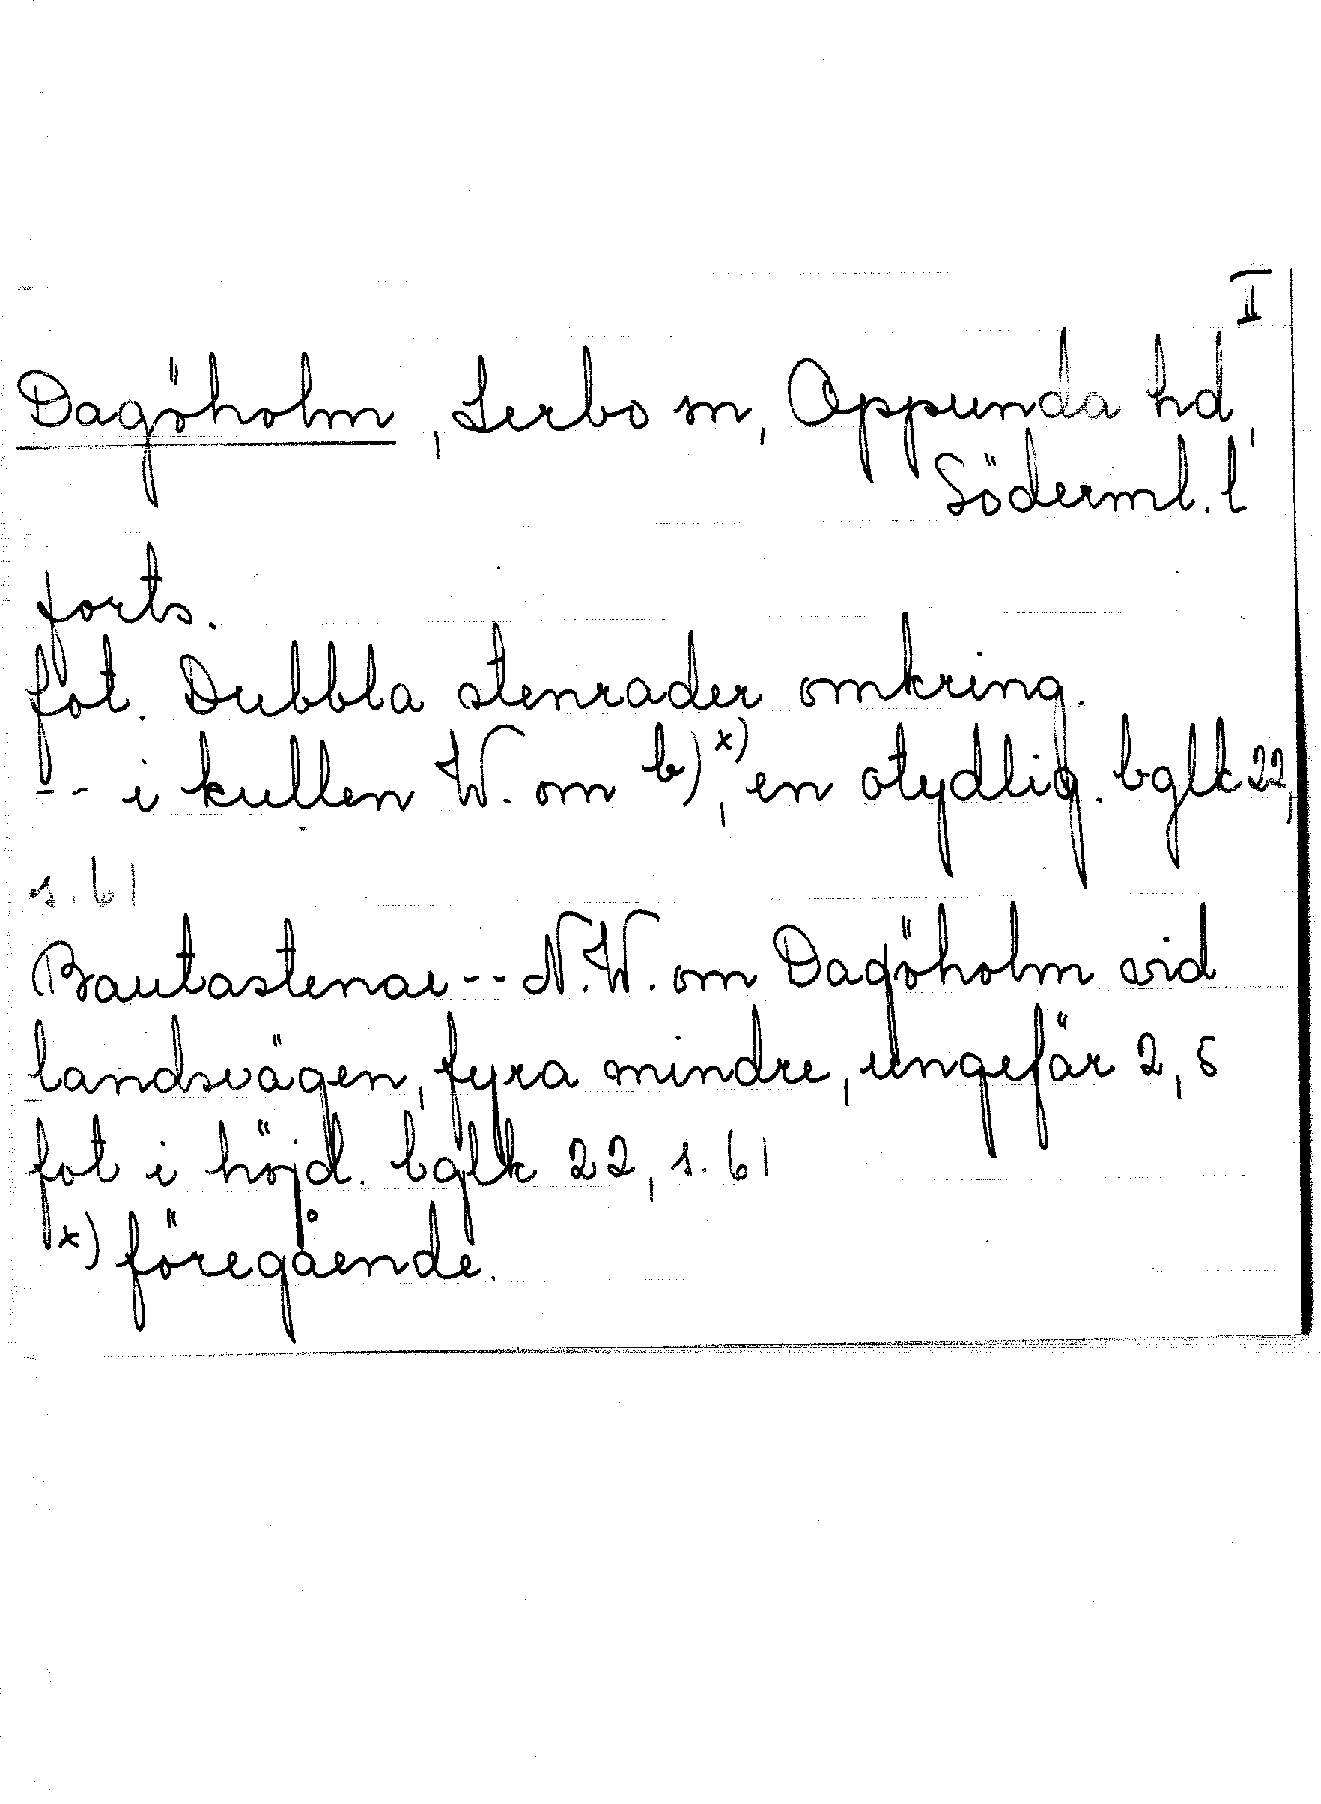 II
Dagöholm, Lerbo sn, Oppunda hd,
Söderml. l
forts.
fot. Dubbla stenrader omkring.
-- i kullen W. om b) x), en otydlig. bglk 22,
s. 61
Bautastenar -- N.W. om Dagöholm vid
landsvägen, fyra mindre, ungefär 2,5
fot i höjd. bglk 22, s. 61
x) föregående.